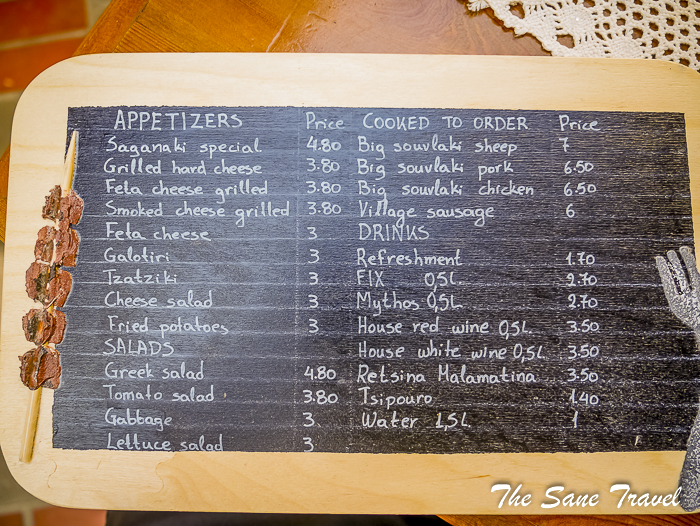 APPETIZERS Price
Saganaki special 4.80
Grilled hard cheese 3.80
Feta cheese grilled 3.80
Smoked cheese grilled 3.80
Feta cheese 3
Galotiri 3
Tzatziki 3
Cheese salad 3
Fried potatoes 3
SALADS
Greek salad 4.80
Tomato salad 3.80
Gabbage 3
Lettuce salad 3
COOKED TO ORDER Price
Big souvlaki sheep 7
Big souvlaki pork 6.50
Big souvlaki chicken 6.50
Village sausage 6
DRINKS
Refreshment 1.70
FIX 0,5L. 2.70
Mythos 0,5L. 2.70
House red wine 0,5L. 3.50
House white wine 0,5L 3.50
Retsina Malamatina 3.50
Tsipouro 1.40
Water 1,5L. 1
The Sane Travel